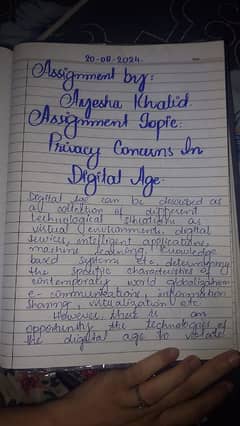 20-08-2024.
Assignment by:
Ayesha Khalid.
Assignment Topic:
Privacy Concerns In
Digital Age.
Digital Age can be described as
an collection of different
technological situations as
virtual environments, digital
services, intelligent applications,
machine learning, knowledge
based systems etc determining
the specific characteristics of
contemporary world globalization
e-communications, information
sharing, virtualization etc.
However, there is an
opportunity the technologies of
the digital age to violate